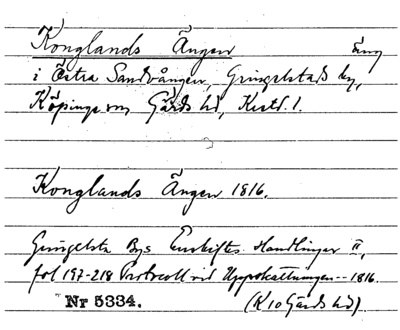 Konglands Ängen äng
i Östra Sandvången, Gringelstads by,
Köpinge sn Gärds hd, Kristl. l.
Konglands Ängen 1816.
Gringelsta Bys Enskiftes Handlingar II,
fol 197-218 Protocoll vid Uppskattningen -- 1816.
Nr 5334. (K 10 Gärds hd).